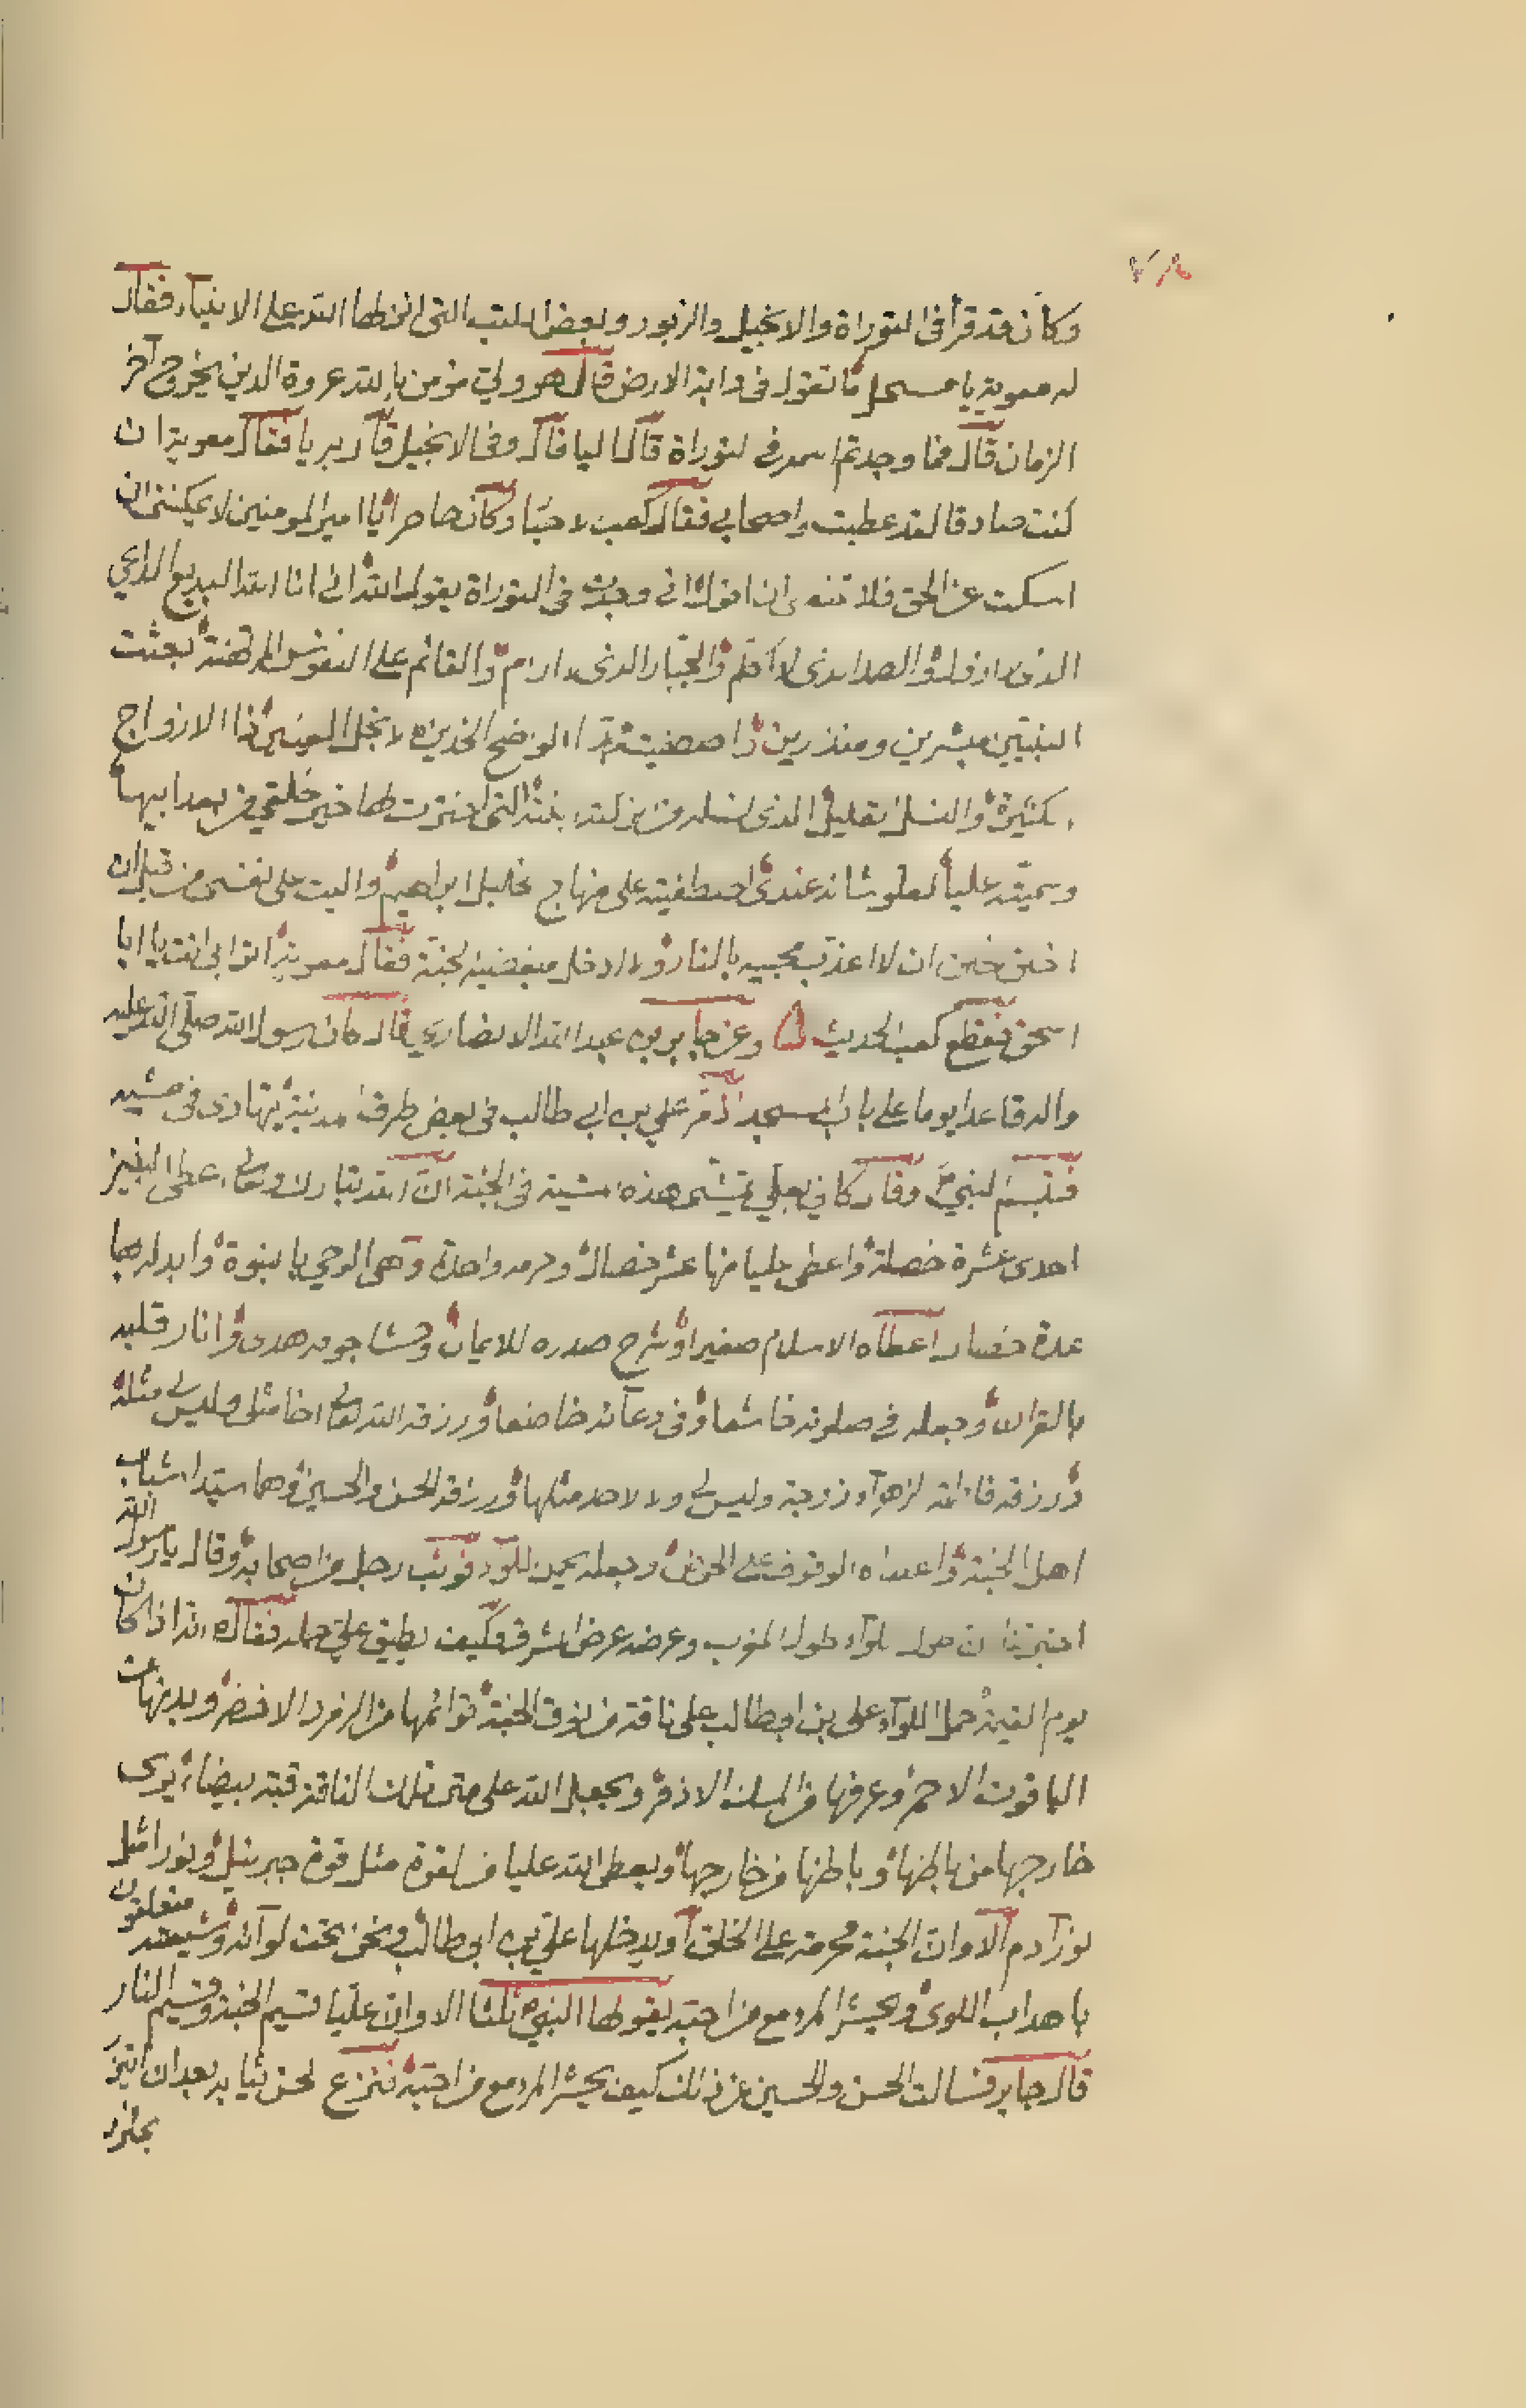 وكان قد قرأ في التوراة والانجيل والزبور وبعض الكتب التي انزلها الله على الانبياء فقال
له معوية يا مسحل ما تقول في دابة الارض قال هو ولي مؤمن بالله عروة الدين يخرج آخر
الزمان قال فما وجدتم اسمه في التوراة قال اليا قال وفي الانجيل قال بريا فقال معوية ان
كنت صادقا لقد عطبت واصحابي فقال كعب الاحبار وكان حاضرا يا امير المومنين لا يمكنني ان
اسكت عن الحق فلا تنهني ان اقول اني وجدت في التوراة يقول الله اني انا الله البديع الداعي
الذي لا ازول والصمد الذي لا اظلم والجبار الذي لا ارام والقائم على النفوس المرتهنة بعثت
النبيين مبشرين ومنذرين واصطفيت
الكثيرة والنسل القليل الذي نسله من ابنته التي اخترت لها خير خلقي من بعد ابيها
وسميته عليا لعلو شانه عندي اصطفيته على منهاج خليلي ابراهيم واليت على نفسي من قبل ان
ان لا اعذب محبيه بالنار ولا ادخل مبغضيه الجنة فقال معوية انت يا ابا
اسحق فقطع كعب الحديث وعن جابر بن عبد الله الانصاري قال كان رسول الله صلى الله عليه
واله قاعدا يوما على باب المسجد اذ مر علي بن ابي طالب في بعض طرف المدينة يتهادى في مشيه
فتبسم النبي وقال كاني بعلي يمشي هذه المشية في الجنة ان الله تبارك وتعالى اعطى النبيين
احدى عشرة خصلة واعطى عليا منها عشر خصال وحرمه واحدة وهي الوحي بالنبوة وابدله بها
عدة خصال اعطاه الاسلام صغيرا وشرح صدره للايمان وحشا جوفه هدى وانار قلبه
بالقران وجعله في صلوته خاشعا وفي دعائه خاضعا ورزقه الله تعالى اخا مثلي وليس لي مثله
ورزقه فاطمة الزهراء زوجة وليس لي ولا لاحد مثلها ورزقه الحسن والحسين وهما سيدا شباب
اهل الجنة واعطاه الوقوف على الحوض وجعله يحمل اللواء فوثب رجل من اصحابه وقال يا رسول الله
اخبرتنا ان طول اللواء طول المغرب وعرضه عرض المشرق فكيف يطيق علي حمله فقال انه اذا كان
يوم القيمة حمل اللواء علي بن ابي طالب على ناقة من نوق الجنة قوائمها من الزمرد الاخضر وبدنها من
الياقوت الاحمر وعرفها من المسك الاذفر ويجعل الله على متن تلك الناقة قبة بيضاء يرى
خارجها من باطنها وباطنها من خارجها ويعطى الله عليا من القوة مثل قوة جبرئيل ونورا مثل
نور آدم الا وان الجنة محرمة على الخلق او يدخلها علي بن ابي طالب ونحن تحت لوآئه وشيعته متعلقون
باهداب اللوى ويحشر المرء مع من احبه يقولها النبي ثلثا الا وان عليا قسيم الجنة وقسيم النار
قال جابر فسالت الحسن والحسين عن ذلك كيف يحشر المرء مع من احبه فنزع الحسن ثيابه بعد ان اتزر
بمئزر